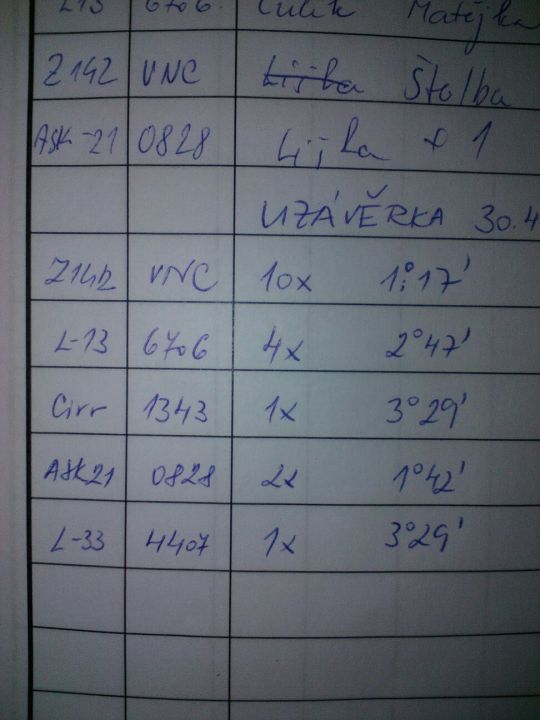 L13 6706 Čulík Matějka
Z142 VNC Lijka Štolba
ASK-21 0828 Lijka + 1
UZÁVĚRKA 30.4
Z142 VNC 10x 1°17'
L-13 6706 4x 2°47'
Cirr 1343 1x 3°29'
ASK21 0828 2x 1°42'
L-33 4407 1x 3°29'